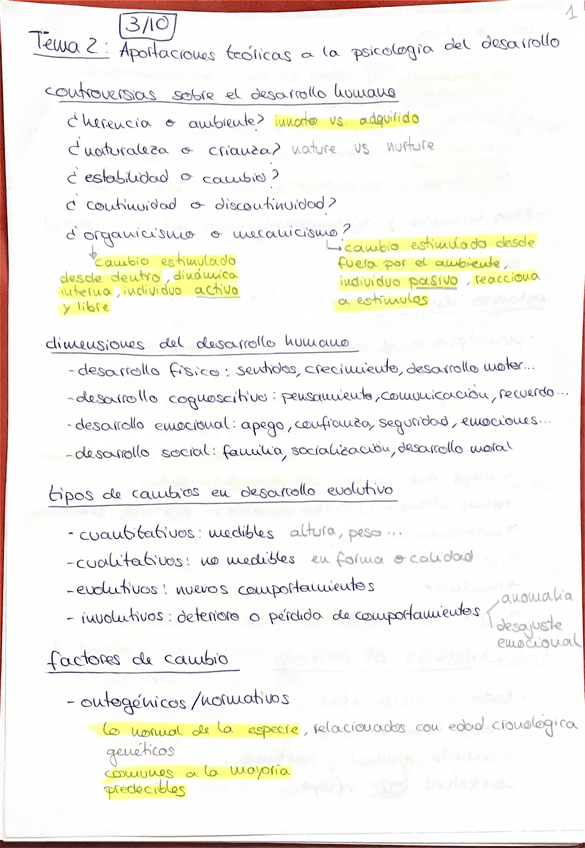 1
3/10
Tema 2: Aportaciones teóricas a la psicología del desarrollo
controversias sobre el desarrollo humano
¿herencia o ambiente? innato vs. adquirido
¿naturaleza o crianza? nature vs nurture
¿estabilidad o cambio?
¿continuidad o discontinuidad?
¿organicismo o mecanicismo?
cambio estimulado
desde dentro, dinámica
interna, individuo activo
y libre
cambio estimulado desde
fuera por el ambiente,
individuo pasivo, reacciona
a estímulos
dimensiones del desarrollo humano
- desarrollo físico: sentidos, crecimiento, desarrollo motor...
- desarrollo cognoscitivo: pensamiento, comunicación, recuerdo...
- desarrollo emocional: apego, confianza, seguridad, emociones...
- desarrollo social: familia, socialización, desarrollo moral
tipos de cambios en desarrollo evolutivo
- cuantitativos: medibles altura, peso...
- cualitativos: no medibles en forma o calidad
- evolutivos: nuevos comportamientos
- involutivos: deterioro o pérdida de comportamientos
anomalia
desajuste
emocional
factores de cambio
- ontogénicos/normativos
lo normal de la especie, relacionados con edad cronológica
genéticos
comunes a la mayoría
predecibles